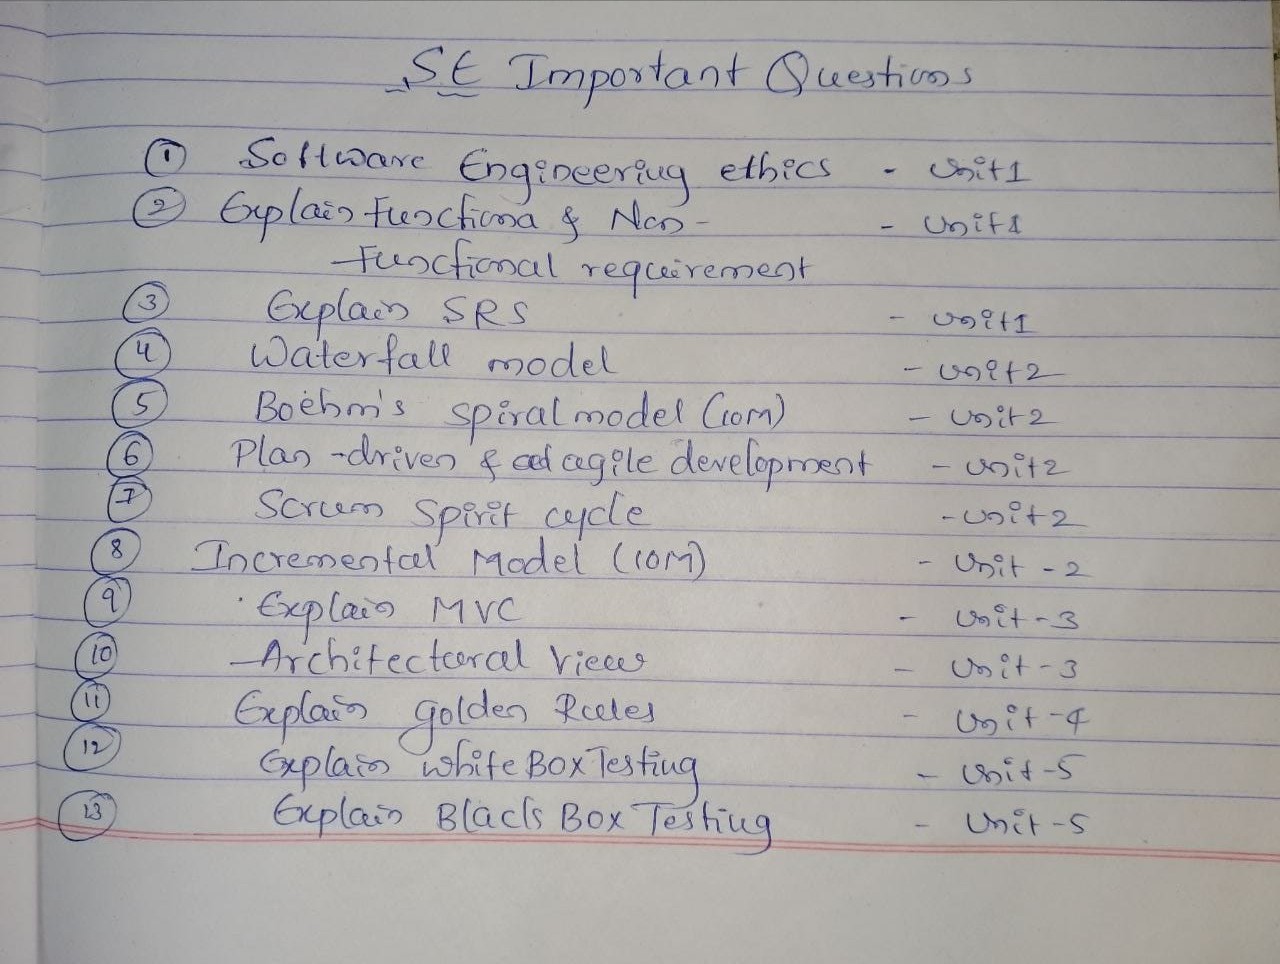 SE Important Questions
① Software Engineering ethics - Unit 1
② Explain Functiona & Non- - Unit 1
Functional requirement
③ Explain SRS - Unit 1
④ Waterfall model - Unit 2
⑤ Boehm's spiral model (10M) - Unit 2
⑥ Plan-driven & agile development - Unit 2
⑦ Scrum Spirit cycle - Unit 2
⑧ Incremental Model (10M) - Unit - 2
⑨ Explain MVC - Unit - 3
⑩ Architectural View - Unit - 3
⑪ Explain golden Rules - Unit - 4
⑫ Explain White Box Testing - Unit - 5
⑬ Explain Black Box Testing - Unit - 5